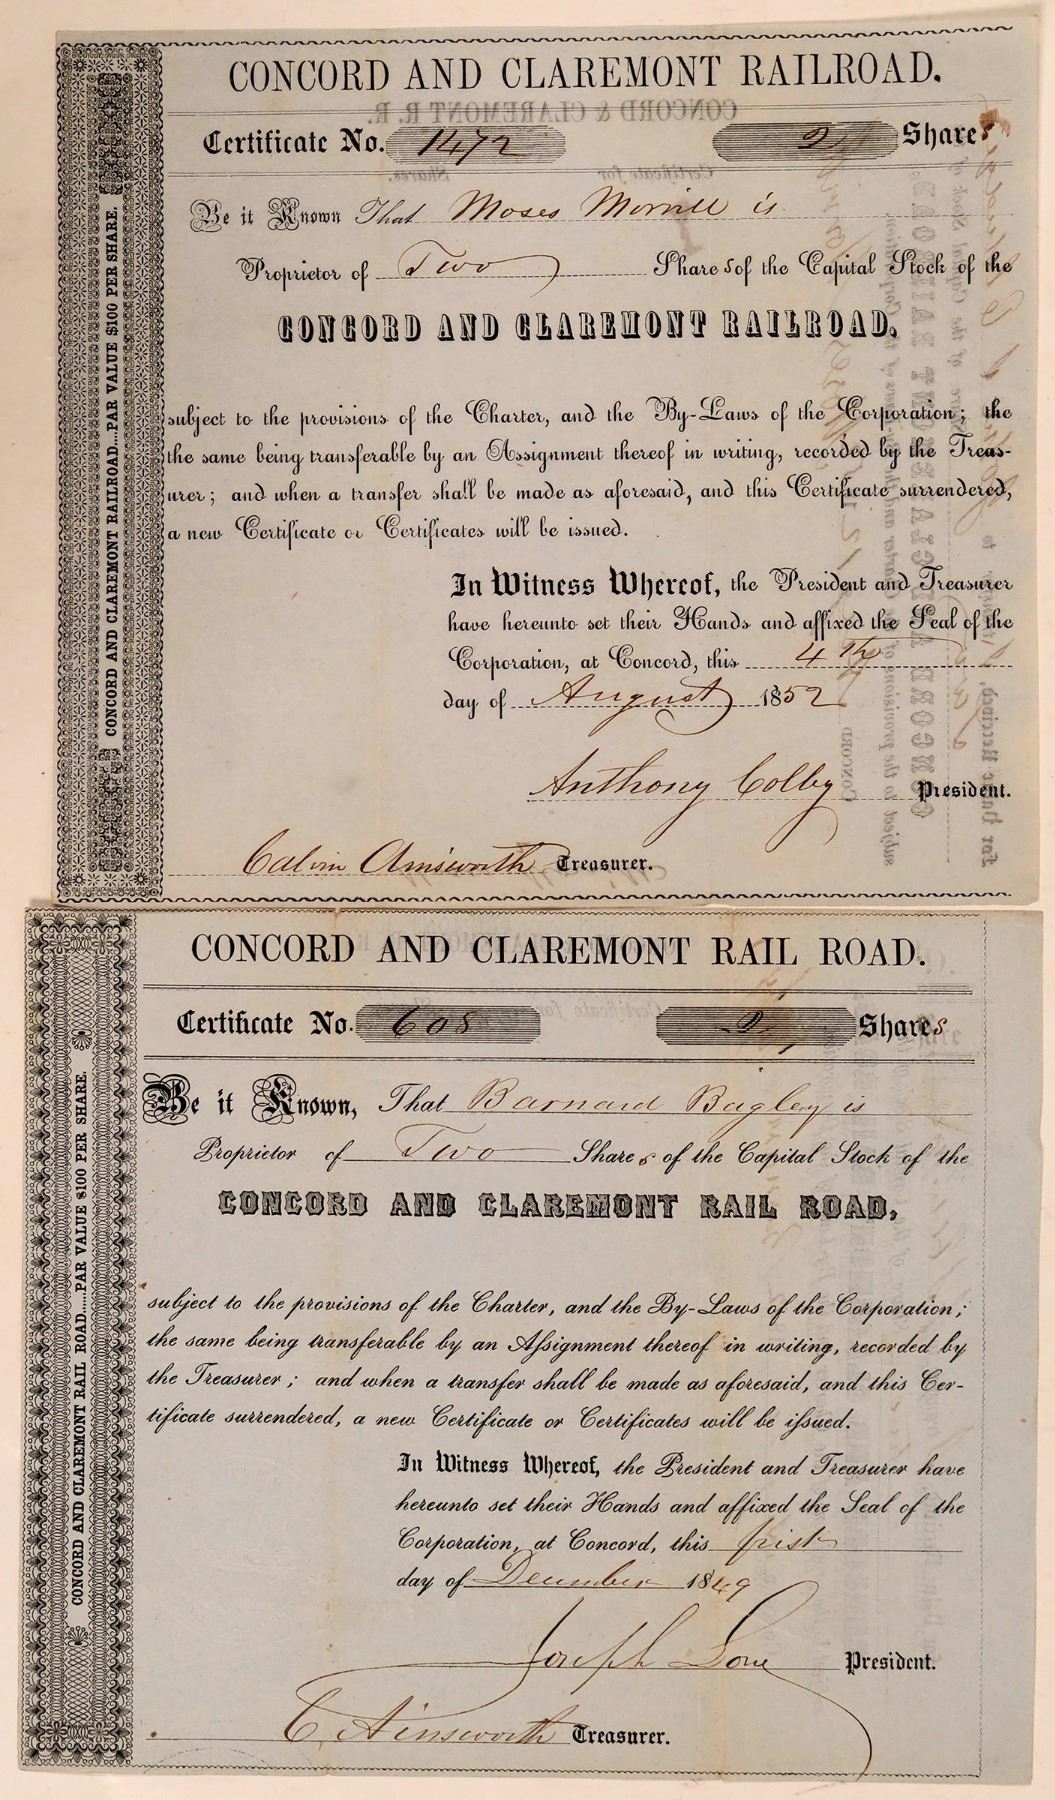 CONCORD AND CLAREMONT RAILROAD.
CONCORD & CLAREMONT R. R.
Certificate No. 1472 2 Shares
Certificate for Shares.
Be it Known That Moses Morrill is
Proprietor of Two Shares of the Capital Stock of the
CONCORD AND CLAREMONT RAILROAD,
subject to the provisions of the Charter, and the By-Laws of the Corporation; the
the same being transferable by an Assignment thereof in writing, recorded by the Treas-
urer; and when a transfer shall be made as aforesaid, and this Certificate surrendered,
a new Certificate or Certificates will be issued.
In Witness Whereof, the President and Treasurer
have hereunto set their Hands and affixed the Seal of the
Corporation, at Concord, this 4th
day of August 1852
Anthony Colby President.
Calvin Ainsworth Treasurer.
CONCORD AND CLAREMONT RAILROAD....PAR VALUE $100 PER SHARE.
CONCORD AND CLAREMONT RAIL ROAD.
Certificate No. 608 2 Shares
Be it Known, That Barnard Bagley is
Proprietor of Two Shares of the Capital Stock of the
CONCORD AND CLAREMONT RAIL ROAD,
subject to the provisions of the Charter, and the By-Laws of the Corporation;
the same being transferable by an Assignment thereof in writing, recorded by
the Treasurer; and when a transfer shall be made as aforesaid, and this Cer-
tificate surrendered, a new Certificate or Certificates will be issued.
In Witness Whereof, the President and Treasurer have
hereunto set their Hands and affixed the Seal of the
Corporation, at Concord, this first
day of December 1849
Joseph Low President.
C. Ainsworth Treasurer.
CONCORD AND CLAREMONT RAIL ROAD.....PAR VALUE $100 PER SHARE.